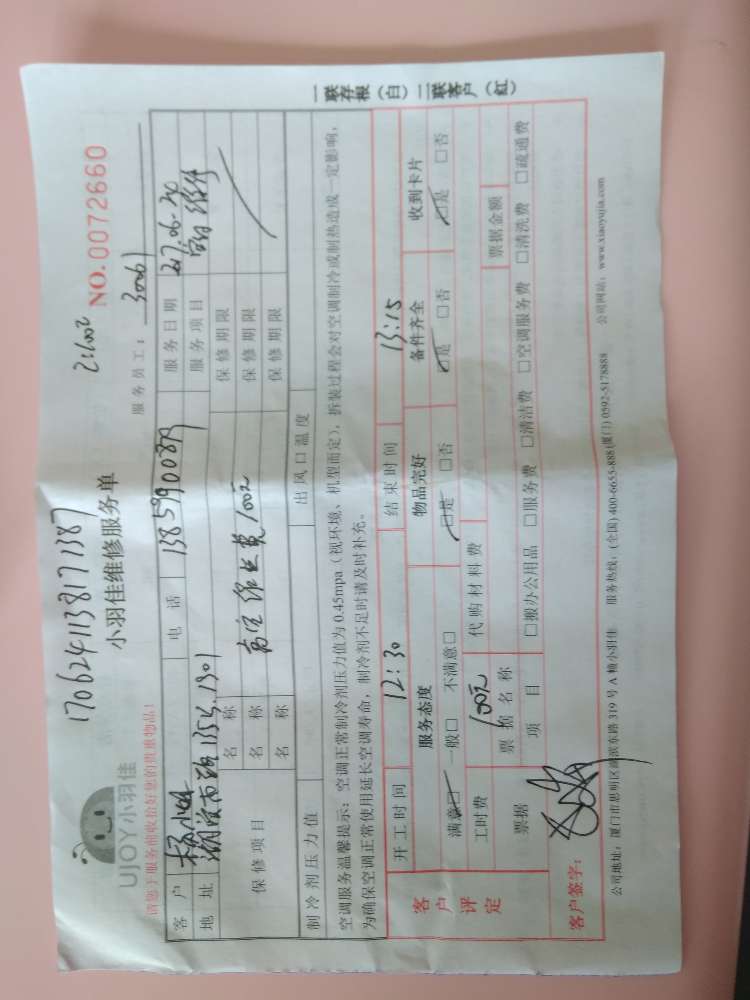 1706241138171387
UJOY小羽佳
小羽佳维修服务单
NO.0072660
请您于服务前收拾好您的贵重物品!
服务员工: 30061
客户 电话 服务日期 217.06-30
地址 服务项目
保修项目 名称 高空作业费100元 保修期限
名称 保修期限
名称 保修期限
制冷剂压力值 出风口温度
空调服务温馨提示:空调正常制冷剂压力值为0.45mpa(视环境、机型而定),拆装过程会对空调制冷或制热造成一定影响,
为确保空调正常使用延长空调寿命,制冷剂不足时请及时补充。
开工时间 12:30 结束时间 13:15
客户评定
服务态度 物品完好 备件齐全 收到卡片
满意□ 一般□ 不满意□ □是 □否 □是 □否 □是 □否
工时费 100元 代购材料费
票据 票据名称 票据金额
项目 □搬办公用品 □服务费 □清洁费 □空调服务费 □清洗费 □疏通费
客户签字:
公司地址:厦门市思明区湖滨东路319号A幢小羽佳 服务热线:(全国)400-6655-888(厦门)0592-5178888 公司网站:www.xiaoyujia.com
一联存根(白)二联客户(红)